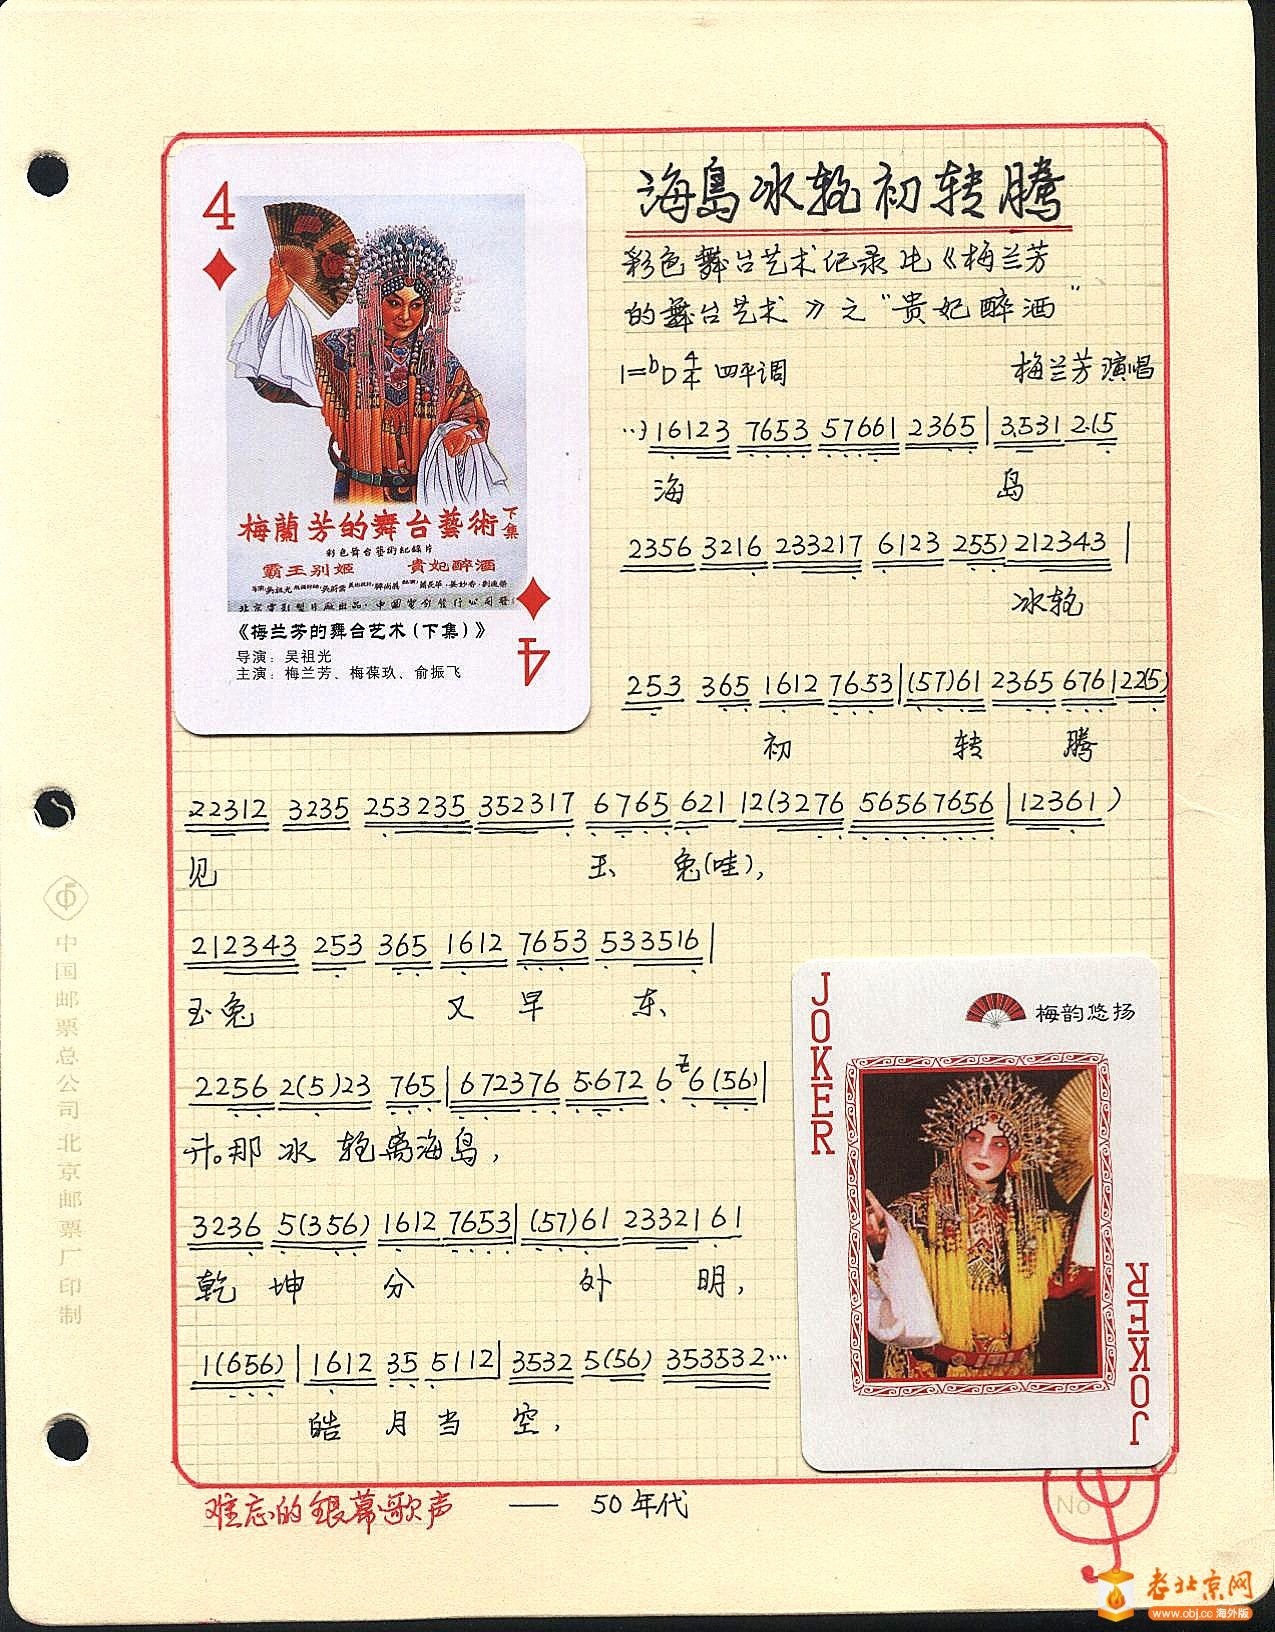 海岛冰轮初转腾
彩色舞台艺术纪录片《梅兰芳
的舞台艺术》之“贵妃醉酒”
1=bD 4/4 四平调 梅兰芳演唱
··) 16123 7653 57661 2365 | 3.531 2.(5
海 岛
2356 3216 233217 6123 255) 212343 |
冰轮
253 365 1612 7653 | (57)61 2365 6761 22(5)
初 转 腾
22312 3235 253235 352317 6765 621 12(3276 56567656 | 12361 )
见 玉、 兔(哇),
212343 253 365 1612 7653 533516 |
玉兔 又 早 东、
2256 2(5)23 765 | 672376 5.672 6 6(56) |
升。那 冰 轮离海岛,
3236 5(356) 1612 7653 | (57)61 23321 61
乾 坤 分 外 明,
1(656) | 1612 35 5112 | 3532 5(56) 353532···
皓 月 当 空,
难忘的银幕歌声 —— 50年代
4
梅蘭芳的舞台藝術 下集
彩色舞台藝術紀錄片
霸王别姬 貴妃醉酒
《梅兰芳的舞台艺术(下集)》
导演: 吴祖光
主演: 梅兰芳、梅葆玖、俞振飞
4
JOKER
梅韵悠扬
JOKER
中国邮票总公司北京邮票厂印制
No
老北京网
www.obj.cc 海外版